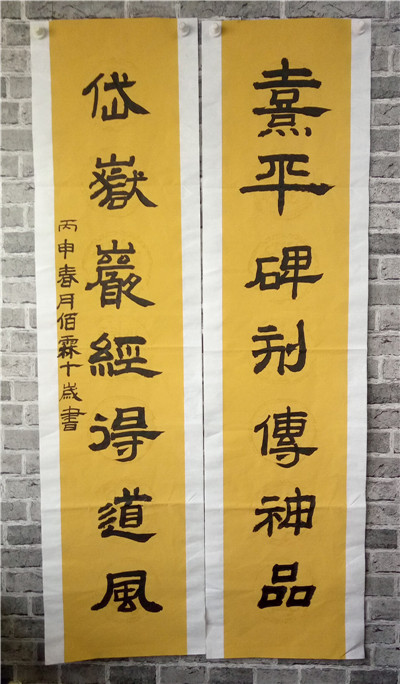 熹平碑刻傳神品
岱嶽巖經得道風
丙申春月佰霖十歲書